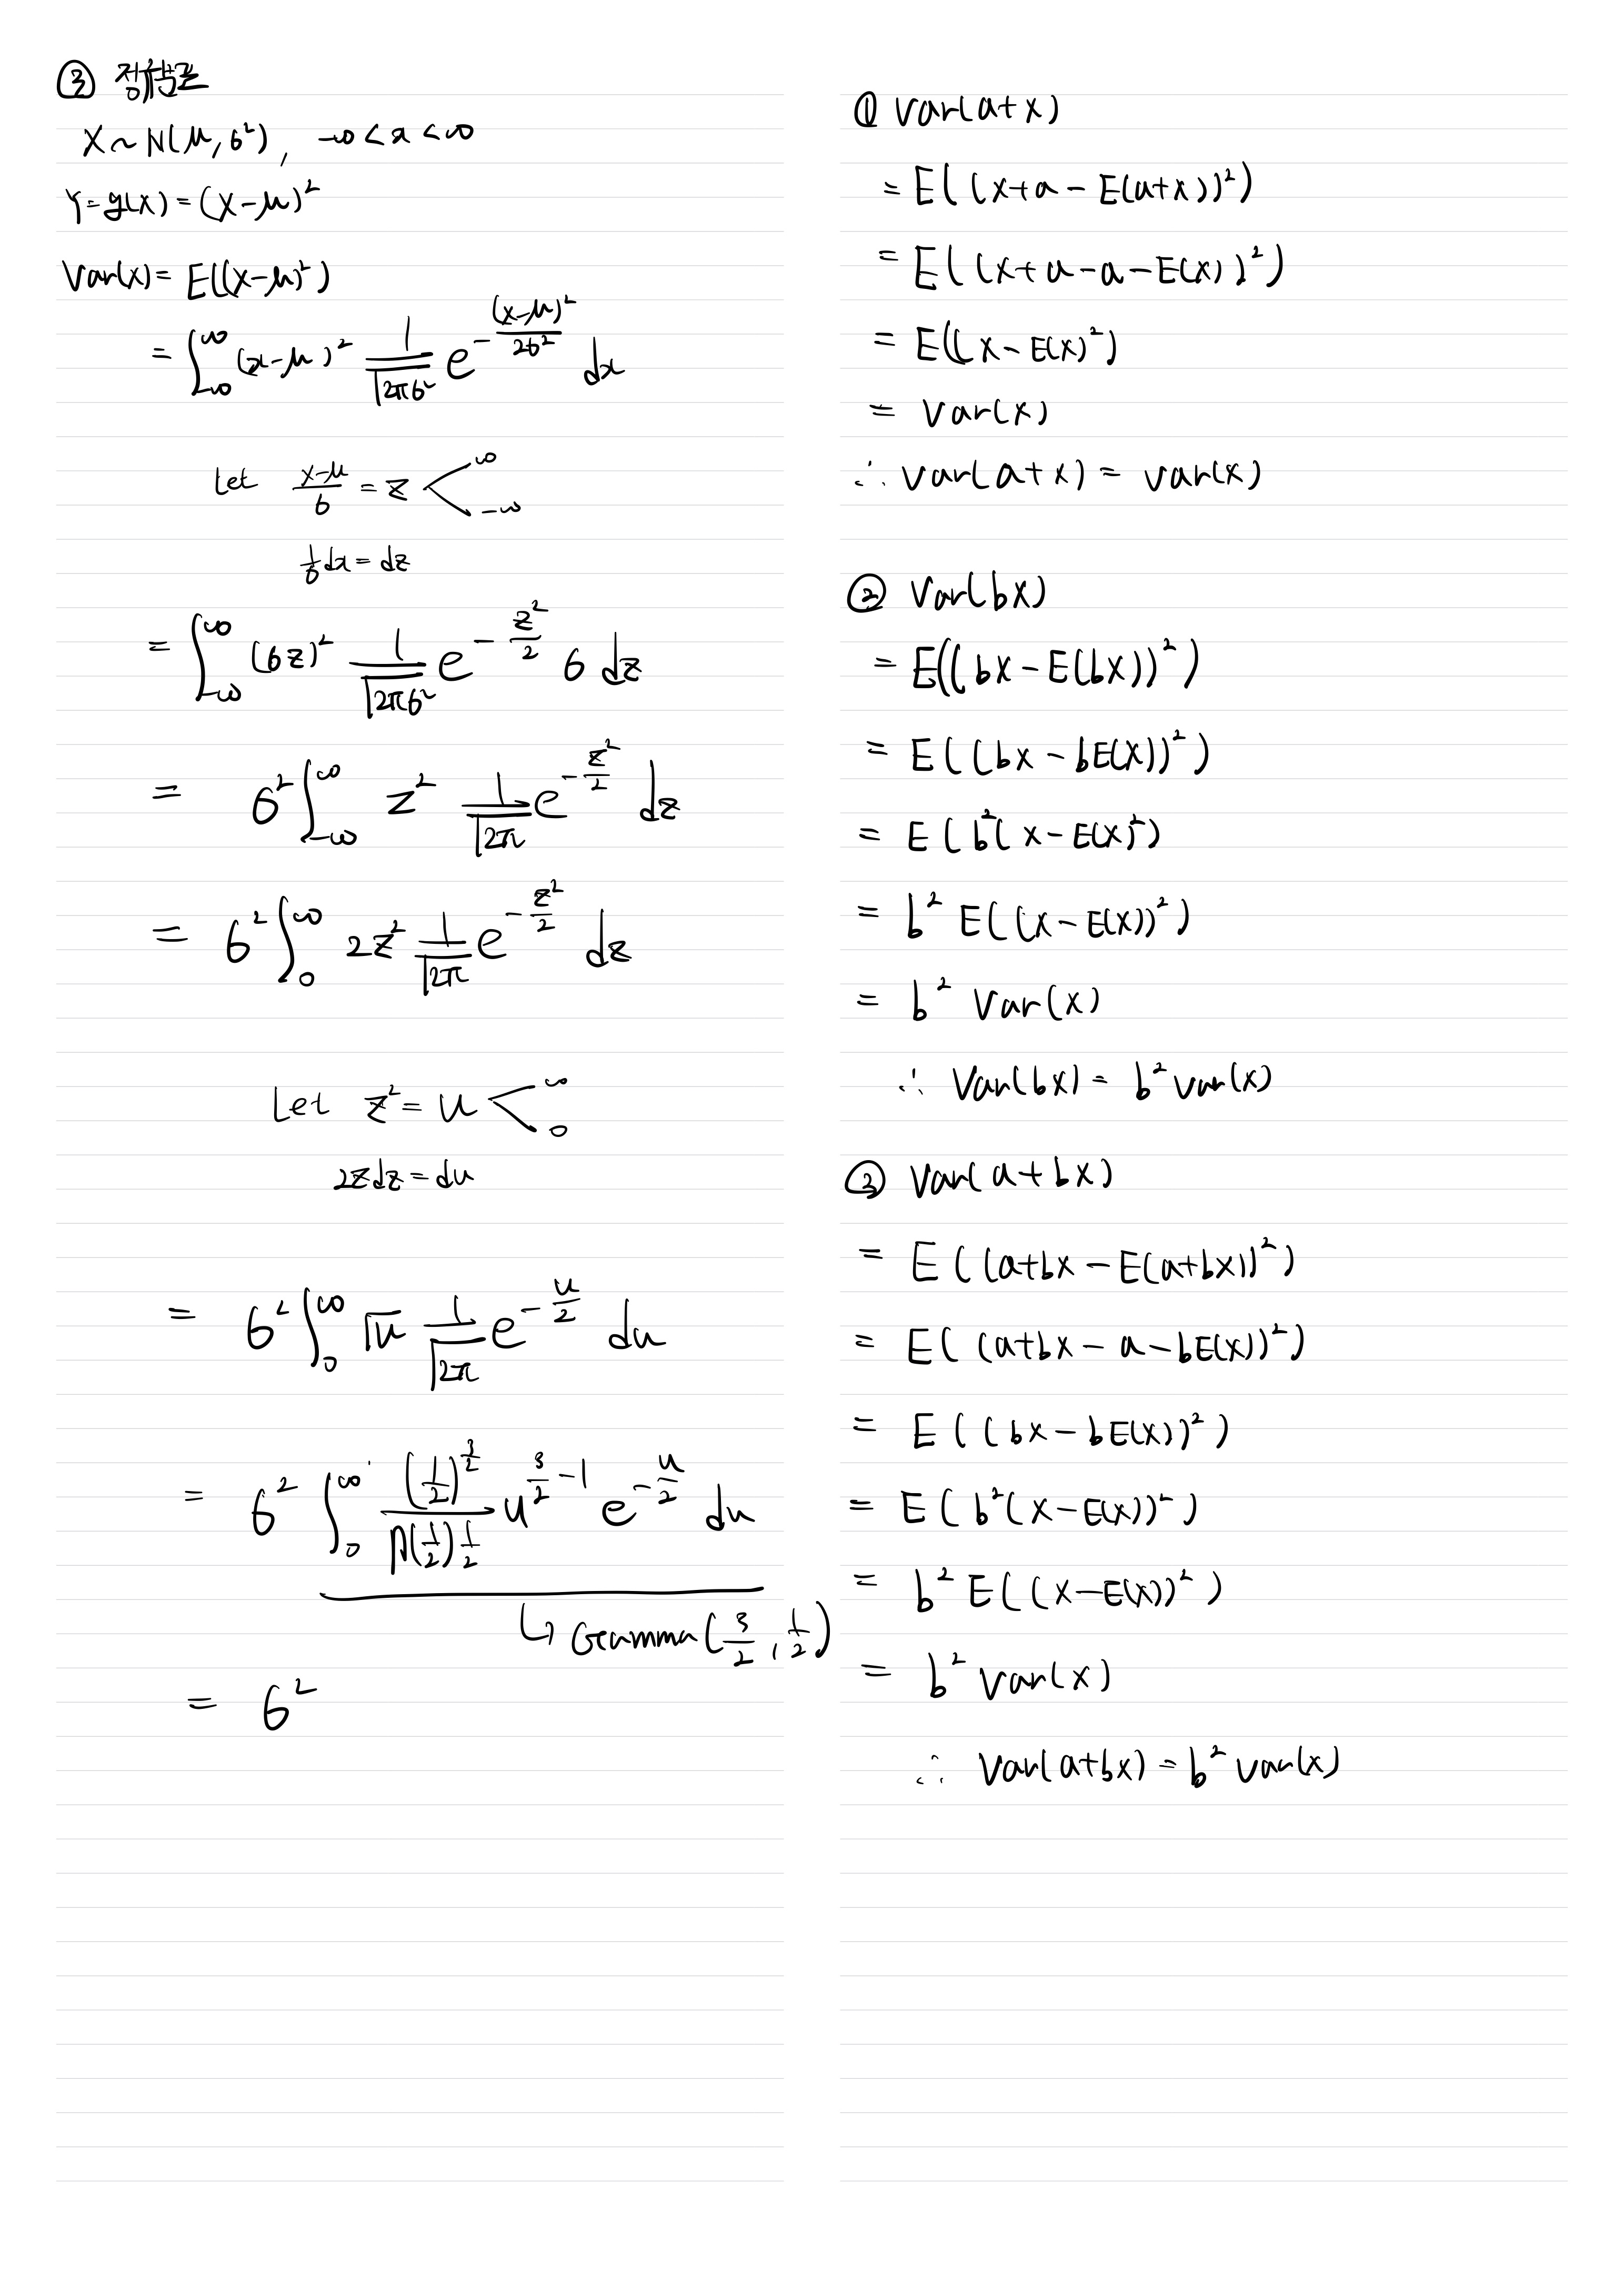 ③ 정규분포
X ~ N(μ, σ²), -∞ < x < ∞
Y = g(X) = (X-μ)²
Var(X) = E((X-μ)²)
= ∫_{-∞}^{∞} (x-μ)² 1/√(2πσ²) e^{-(x-μ)²/2σ²} dx
Let (x-μ)/σ = z < ∞, -∞
1/σ dx = dz
= ∫_{-∞}^{∞} (σz)² 1/√(2πσ²) e^{-z²/2} σ dz
= σ² ∫_{-∞}^{∞} z² 1/√(2π) e^{-z²/2} dz
= σ² ∫_{0}^{∞} 2z² 1/√(2π) e^{-z²/2} dz
Let z² = u < ∞, 0
2zdz = du
= σ² ∫_{0}^{∞} √u 1/√(2π) e^{-u/2} du
= σ² ∫_{0}^{∞} (1/2)^{3/2} / (Γ(1/2) 1/2) u^{3/2 - 1} e^{-u/2} du
↳ Gamma(3/2, 1/2)
= σ²
① Var(a+X)
= E((X+a - E(a+X))²)
= E((X+a-a-E(X))²)
= E((X-E(X)²)
= Var(X)
∴ Var(a+X) = Var(X)
② Var(bX)
= E((bX - E(bX))²)
= E((bX - bE(X))²)
= E(b²(X-E(X)²)
= b² E((X-E(X))²)
= b² Var(X)
∴ Var(bX) = b² Var(X)
③ Var(a+bX)
= E((a+bX - E(a+bX))²)
= E((a+bX - a - bE(X))²)
= E((bX - bE(X))²)
= E(b²(X-E(X))²)
= b² E((X-E(X))²)
= b² Var(X)
∴ Var(a+bX) = b² Var(X)